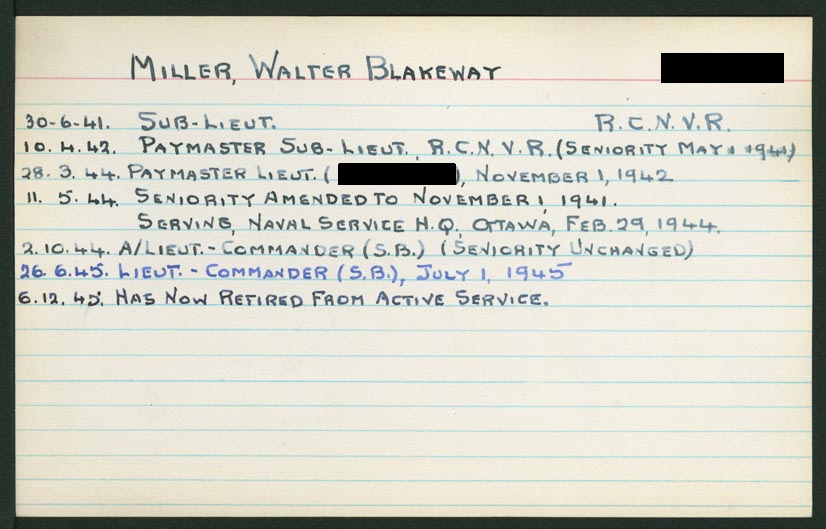 MILLER, WALTER BLAKEWAY
30-6-41. SUB-LIEUT. R.C.N.V.R.
10.4.42. PAYMASTER SUB-LIEUT., R.C.N.V.R. (SENIORITY MAY 1 1941)
28.3.44. PAYMASTER LIEUT. ( ), NOVEMBER 1, 1942
11.5.44. SENIORITY AMENDED TO NOVEMBER 1, 1941.
SERVING, NAVAL SERVICE H.Q. OTTAWA, FEB. 29, 1944.
2.10.44. A/LIEUT.-COMMANDER (S.B.) (SENIORITY UNCHANGED)
26.6.45. LIEUT.-COMMANDER (S.B.), JULY 1, 1945
6.12.45. HAS NOW RETIRED FROM ACTIVE SERVICE.